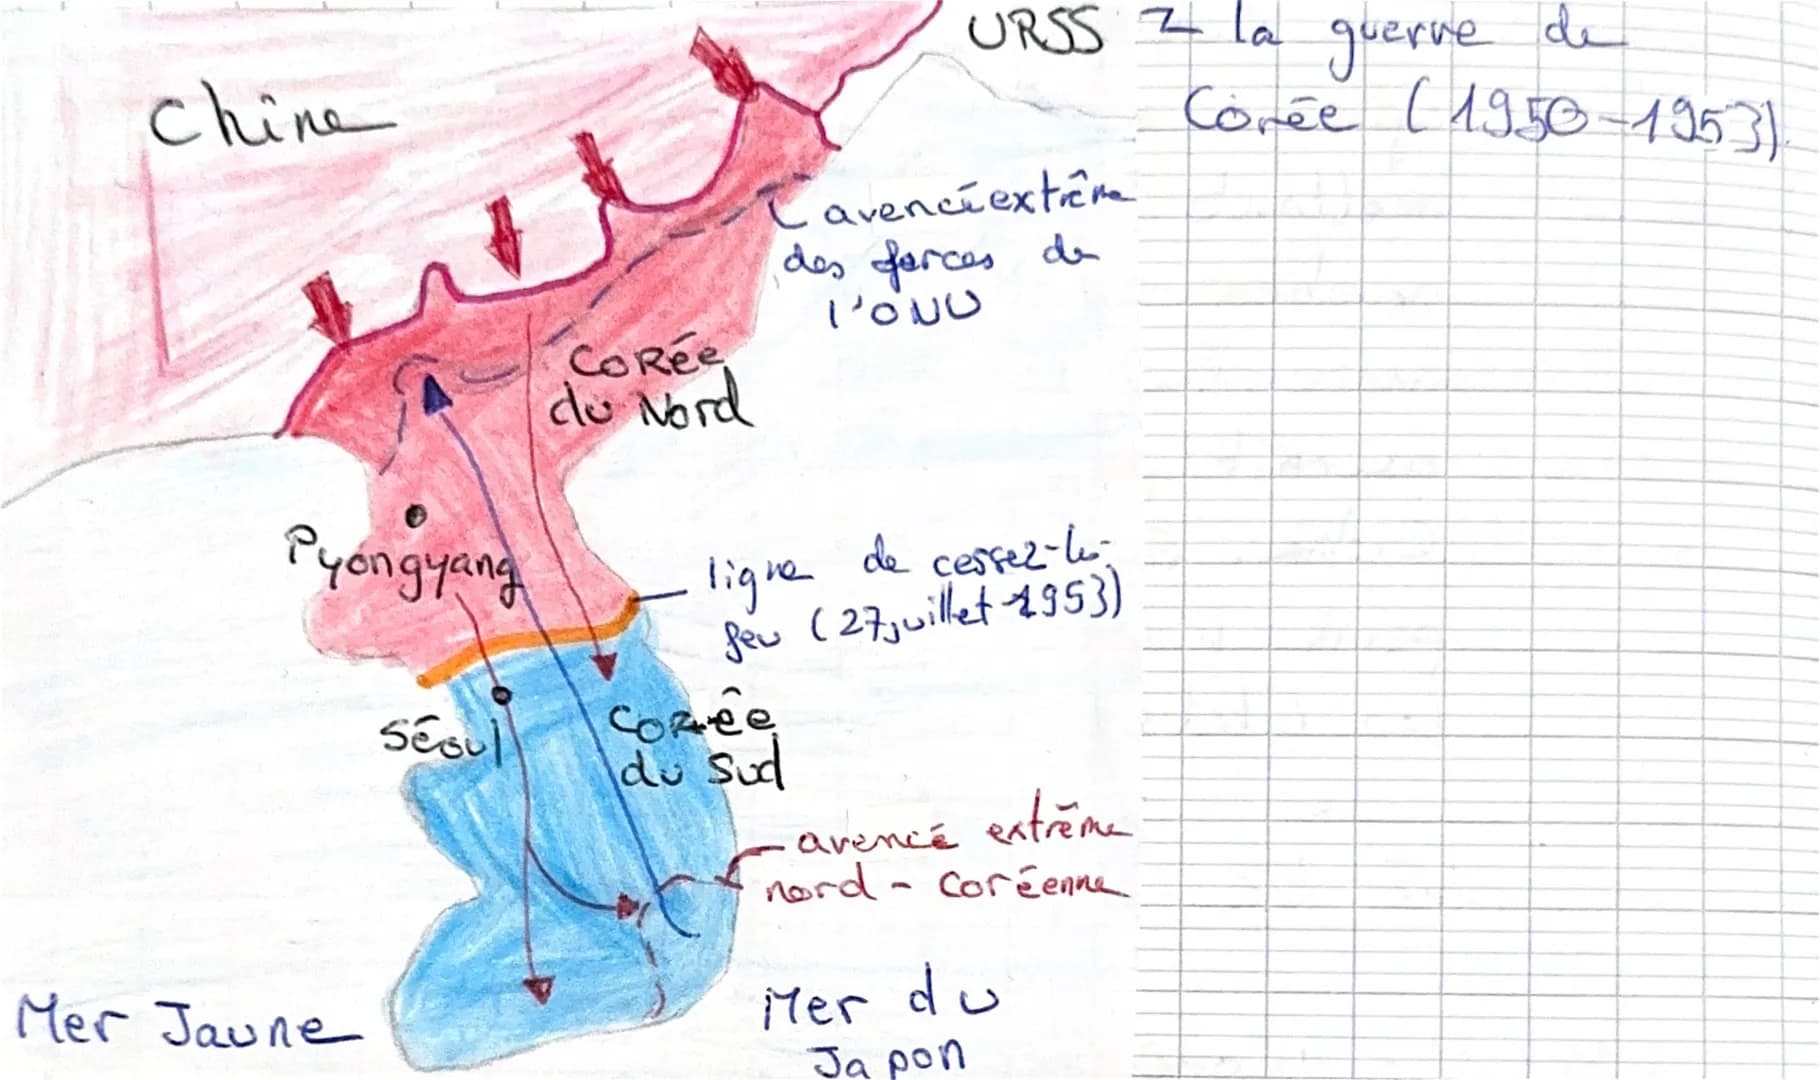 URSS
2 la guerre de
Corée (1950-1953)
Chine
avencéextrême
des forces de
l'ONU
CORÉE
du Nord
Pyongyang
ligne de cessez-le-
feu (27 juillet 1953)
Séoul
CORÉE
du Sud
avencé extrême
nord-Coréenne
Mer Jaune
Mer du
Japon